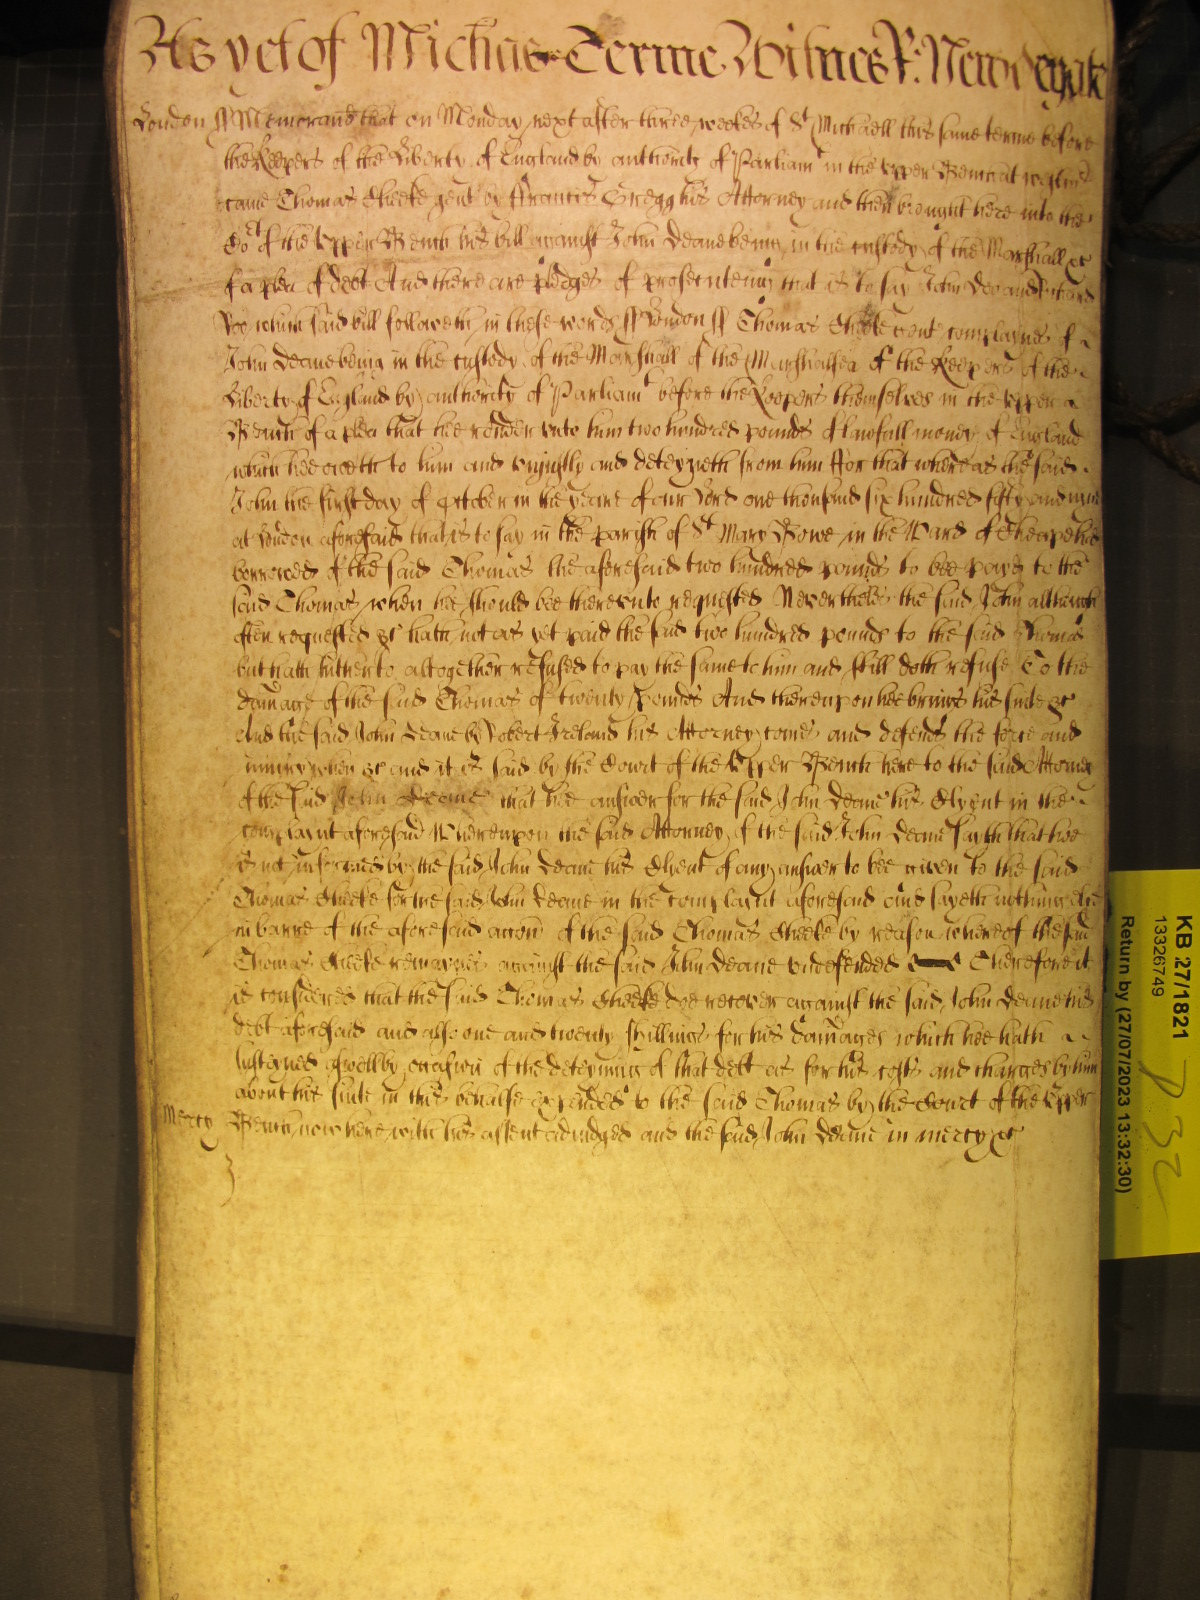 As yet of Michas Terme Witnes R: Newdegate
London ss Memorand that on Monday next after three weekes of St Michaell this same terme before
the Keepers of the Liberty of England by authority of Parliamt in the upper Bench at
came Thomas Cheeke gent by ffrancis Gregg his Attorney and then brought here into the
Cot of the upper Bench his bill against John Deane being in the custody of the Marshall &c
of a plea of debt And there are pledges of prosecuteing that is to say John Doo and Richard
Roo which said bill followeth in these words ss London ss Thomas Cheeke gent complaynes of
John Deane being in the custody of the Marshall of the Marshalsea of the Keepers of the
Liberty of England by authority of Parliamt before the Keepers themselves in the upper
Bench of a plea that hee render unto him two hundred pounds of lawfull money of England
which hee oweth to him and unjustly and deteyneth from him ffor that whereas the said
John the first day of October in the yeare of our Lord one thousand six hundred fifty and nine
at London aforesaid that is to say in the parish of St Mary Bowe in the Ward of Cheape hee
borrowed of the said Thomas the aforesaid two hundred pounds to bee payd to the
said Thomas when hee should bee thereunto requested Neverthels the said John although
often requested &c hath not as yet paid the said two hundred pounds to the said Thomas
but hath hitherto altogether refused to pay the same to him and still doth refuse To the
damage of the said Thomas of twenty pounds And thereupon hee brings his suite &c
And the said John Deane by Robert Ireland his Attorney comes and defends the force and
iniury when &c and it is said by the Court of the upper Bench here to the said Attorney
of the said John Deane that hee answer for the said John Deane his Clyent in the
complaynt aforesaid Whereupon the said Attorney of the said John Deane sayth that hee
is not informed by the said John Deane his Clyent of any answer to bee given to the said
Thomas Cheeke for the said John Deane in the complaynt aforesaid And sayeth nothing else
in barre of the aforesaid accon of the said Thomas Cheeke by reason whereof the said
Thomas Cheeke remaynes against the said John Deane undefended Therefore it
is considered that the said Thomas Cheeke doe recover against the said John Deane his
debt aforesaid and also one and twenty shillings for his damages which hee hath
susteyned aswell by occasion of the deteyning of that debt as for his costs and charges by him
about his suite in this behalfe expended to the said Thomas by the Court of the upper
Mercy Bench now here with his assent adiudged and the said John Deane in mercy &c
KB 27/1821
13326749
Return by (27/07/2023 13:32:30)
P 32